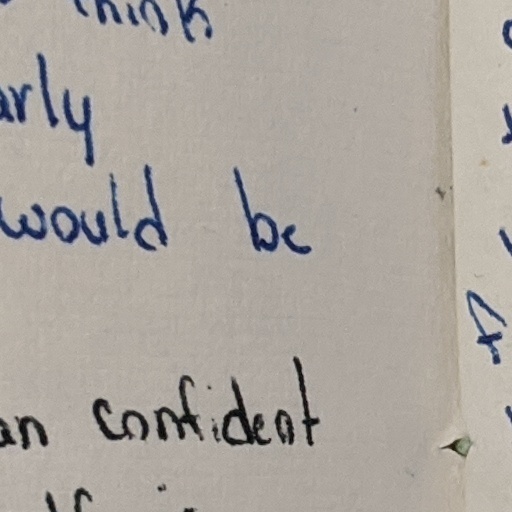 think
arly
would be
an confident